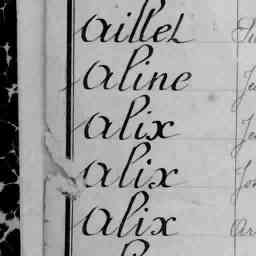 Aillet
Aline
Alix
Alix
Alix